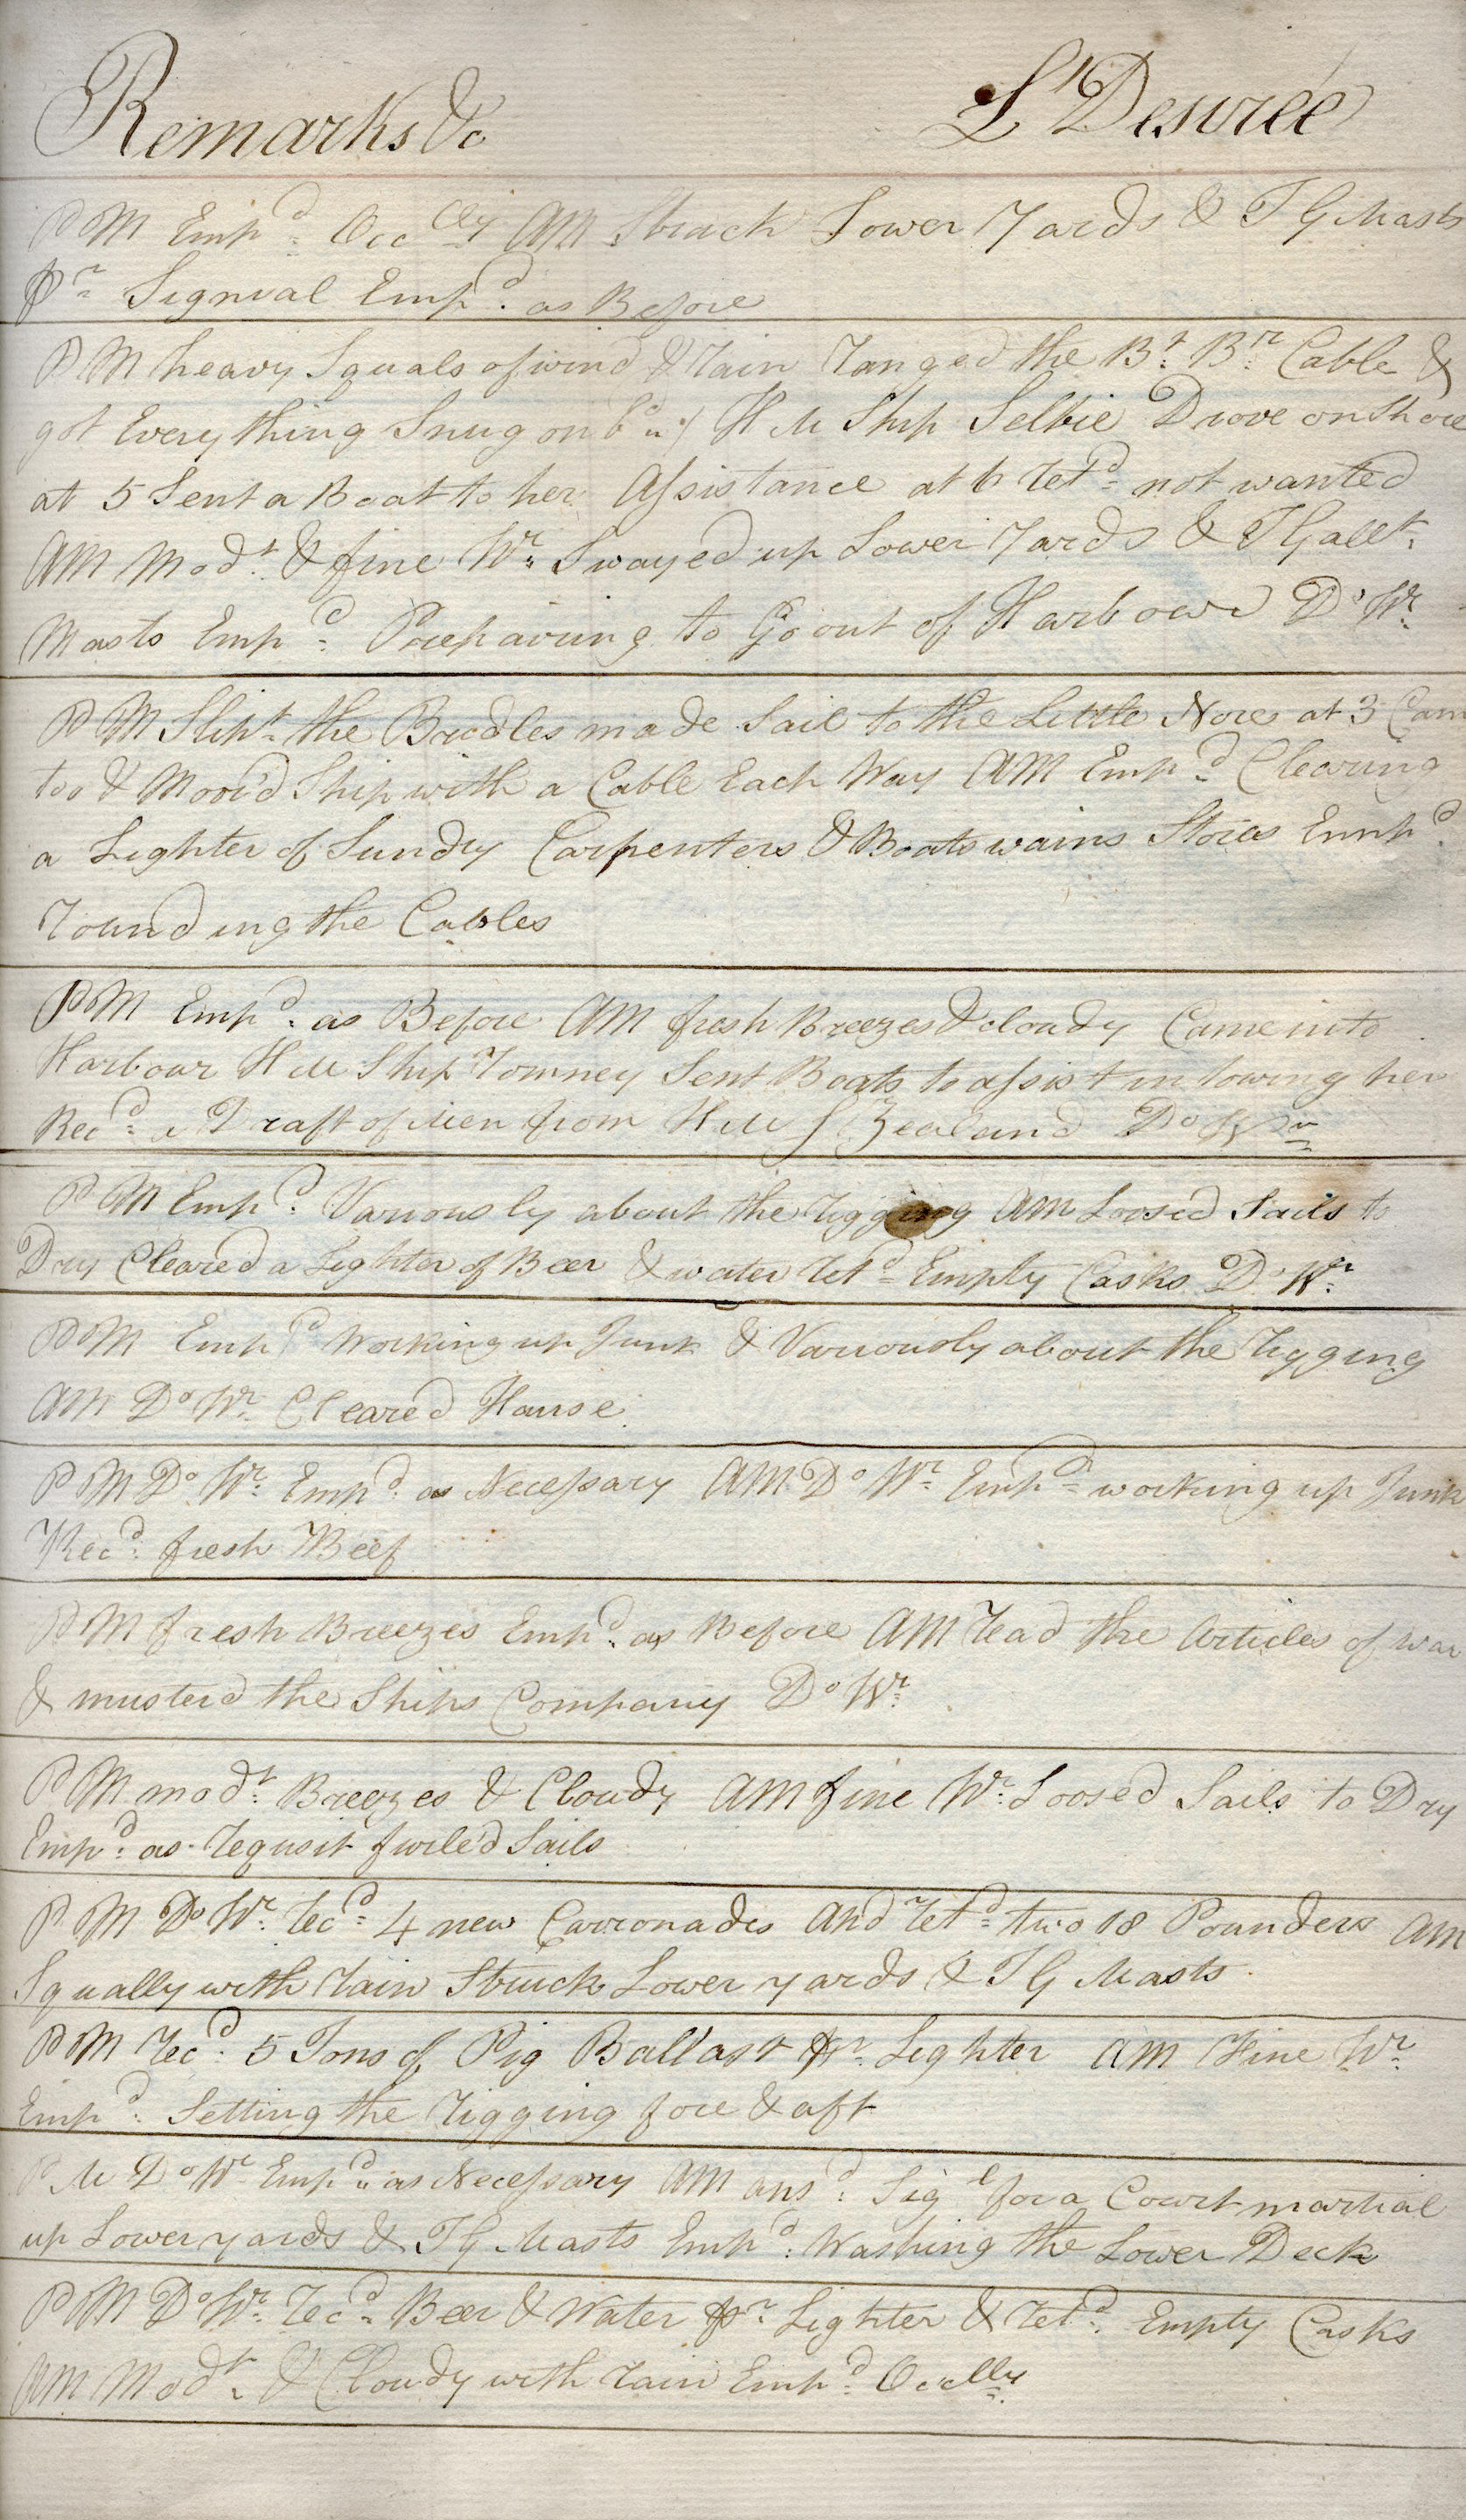 Remarks &c L'Desirée
PM Empd. Occlly AM Struck Lower Yards & TG Masts
pr Signal Empd. as Before
PM heavy Squals of wind & rain ranged the Bt. Br. Cable &
got Every thing Snug on bd. HM Ship Selbie Drove on Shore
at 5 Sent a Boat to her Assistance at 6 retd. not wanted
AM Modt. & fine Wr. Swayed up Lower Yards & TGallt.
Masts Empd. Prepairing to Go out of Harbour Do Wr.
PM Slipt. the Bridles made Sail to the Little Nore at 3 Came
too & Moor'd Ship with a Cable Each Way AM Empd. Clearing
a Lighter of Sundry Carpenters & Boatswains Stores Empd.
rounding the Cables
PM Empd. as Before AM fresh Breezes & cloudy Came into
Harbour HM Ship Romney Sent Boats to assist in towing her
Recd. a Draft of Men from HMS Zealand Do Wr
PM Empd. Variously about the rigging AM Loosed Sails to
Dry Cleared a Lighter of Beer & water retd. Empty Casks Do Wr.
PM Empd Working up Junk & Variously about the rigging
AM Do Wr. Cleared Hause
PM Do Wr. Empd. as Necessary AM Do Wr. Empd. working up Junk
Recd. fresh Beef
PM fresh Breezes Empd. as Before AM read the Articles of war
& musterd the Ships Company Do Wr.
PM modt. Breezes & Cloudy AM fine Wr. Loosed Sails to Dry
Empd. as requsit furled Sails
PM Do Wr. recd. 4 new Carronades and retd. two 18 Pounders AM
Squally with rain Struck Lower yards & TG Masts
PM recd. 5 Tons of Pig Ballast pr. Lighter AM Fine Wr.
Empd. Setting the rigging fore & aft
PM Do Wr Empd. as Necessary AM ansd. Sigl for a Court martial
up Lower yards & TG Masts Empd. Washing the Lower Deck
PM Do Wr. recd. Beer & Water pr. Lighter & retd. Empty Casks
AM Modt. & Cloudy with rain Empd. Occlly